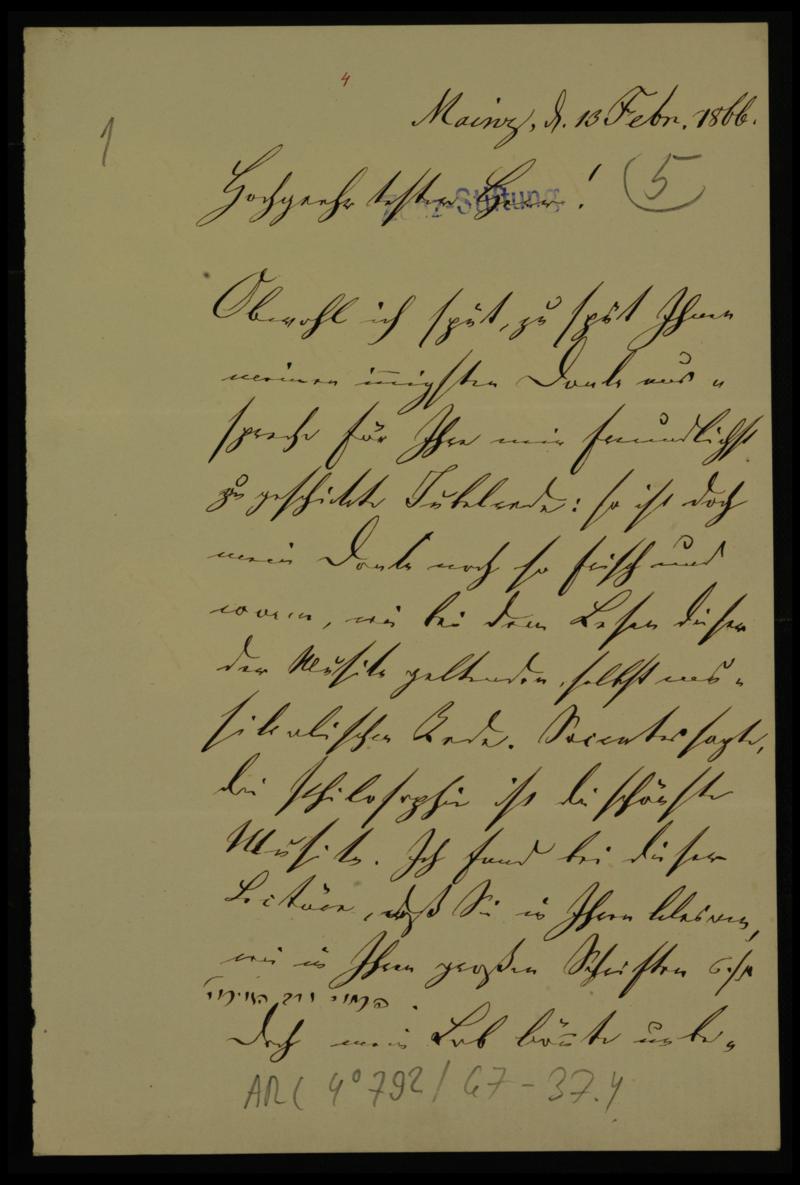 4
Mainz, d. 13 Febr. 1866.
1
Hochgeehrtester Herr!
Zunz-Stiftung
5
Obwohl ich spät, zu spät Ihnen
meinen innigsten Dank aus-
spreche für Ihre mir freundlichst
zugeschickte Jubelrede: so ist doch
mein Dank noch so frisch und
warm, wie bei dem Lesen dieser
der Musik geltenden, selbst mu-
sikalischen Rede. Socrates sagte,
die Philosophie ist die schönste
Musik. Ich fand bei dieser
Lectüre, daß Sie in Ihren kleinen,
wie in Ihren großen Schriften
Doch mein Lob könnte unbe-
ARC 4° 792 / G7 - 37.4